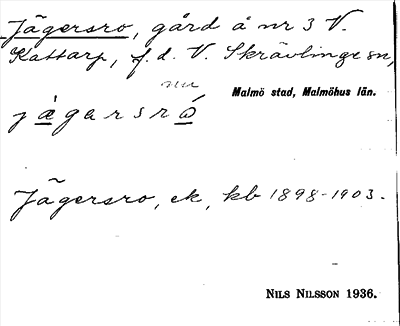 Jägersro, gård å nr 3 V.
Kattarp, f.d. V. Skrävlinge sn,
nu
Malmö stad, Malmöhus län.
jägarsrω
Jägersro, ek, kb 1898-1903.
NILS NILSSON 1936.